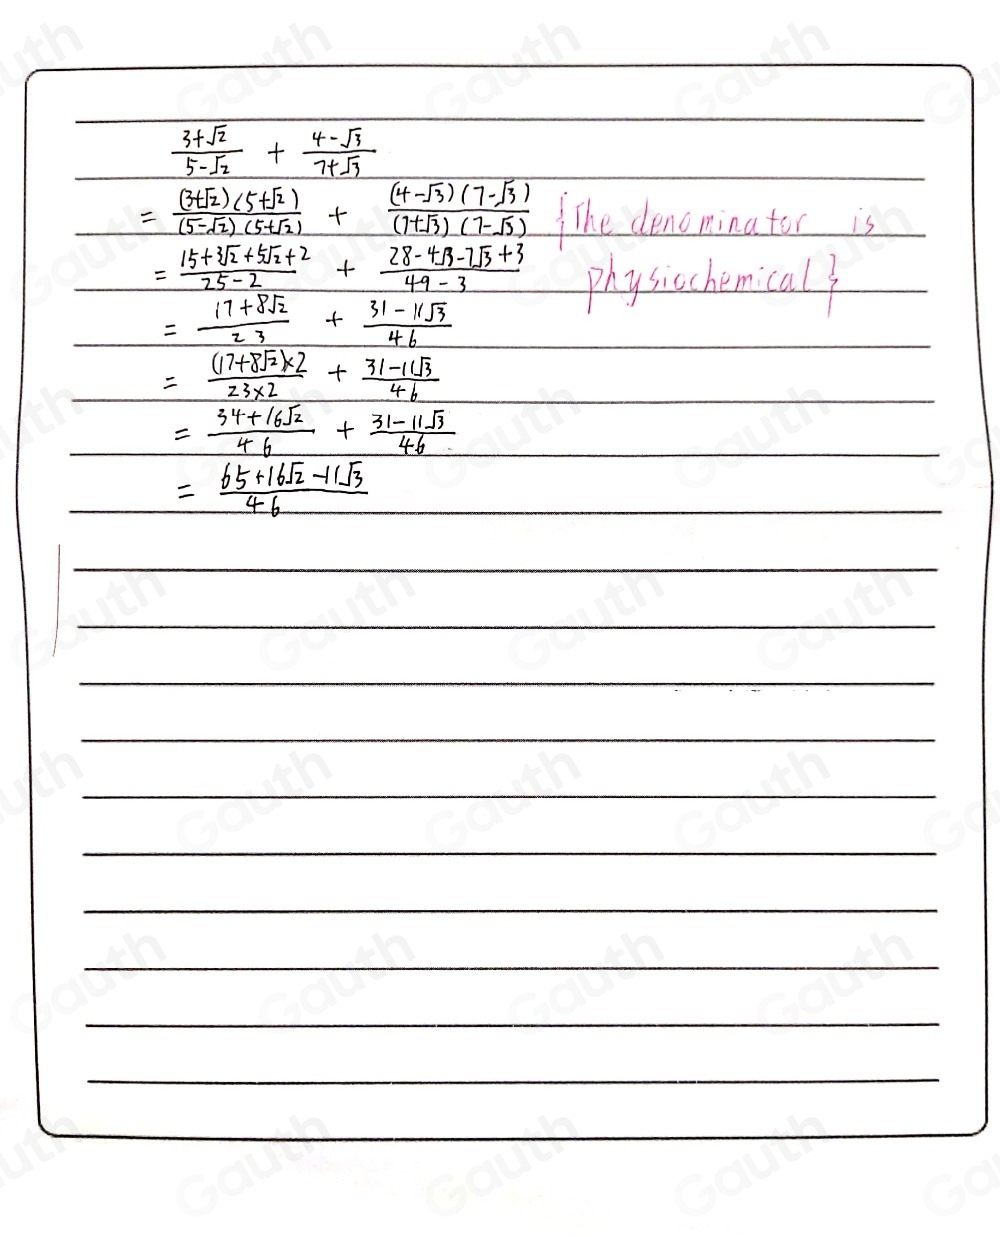 (3+√2)/(5-√2) + (4-√3)/(7+√3)
= (3+√2)(5+√2)/(5-√2)(5+√2) + (4-√3)(7-√3)/(7+√3)(7-√3) {The denominator is
physiochemical}
= (15+3√2+5√2+2)/(25-2) + (28-4√3-7√3+3)/(49-3)
= (17+8√2)/23 + (31-11√3)/46
= (17+8√2)×2/(23×2) + (31-11√3)/46
= (34+16√2)/46 + (31-11√3)/46
= (65+16√2-11√3)/46
Gauth